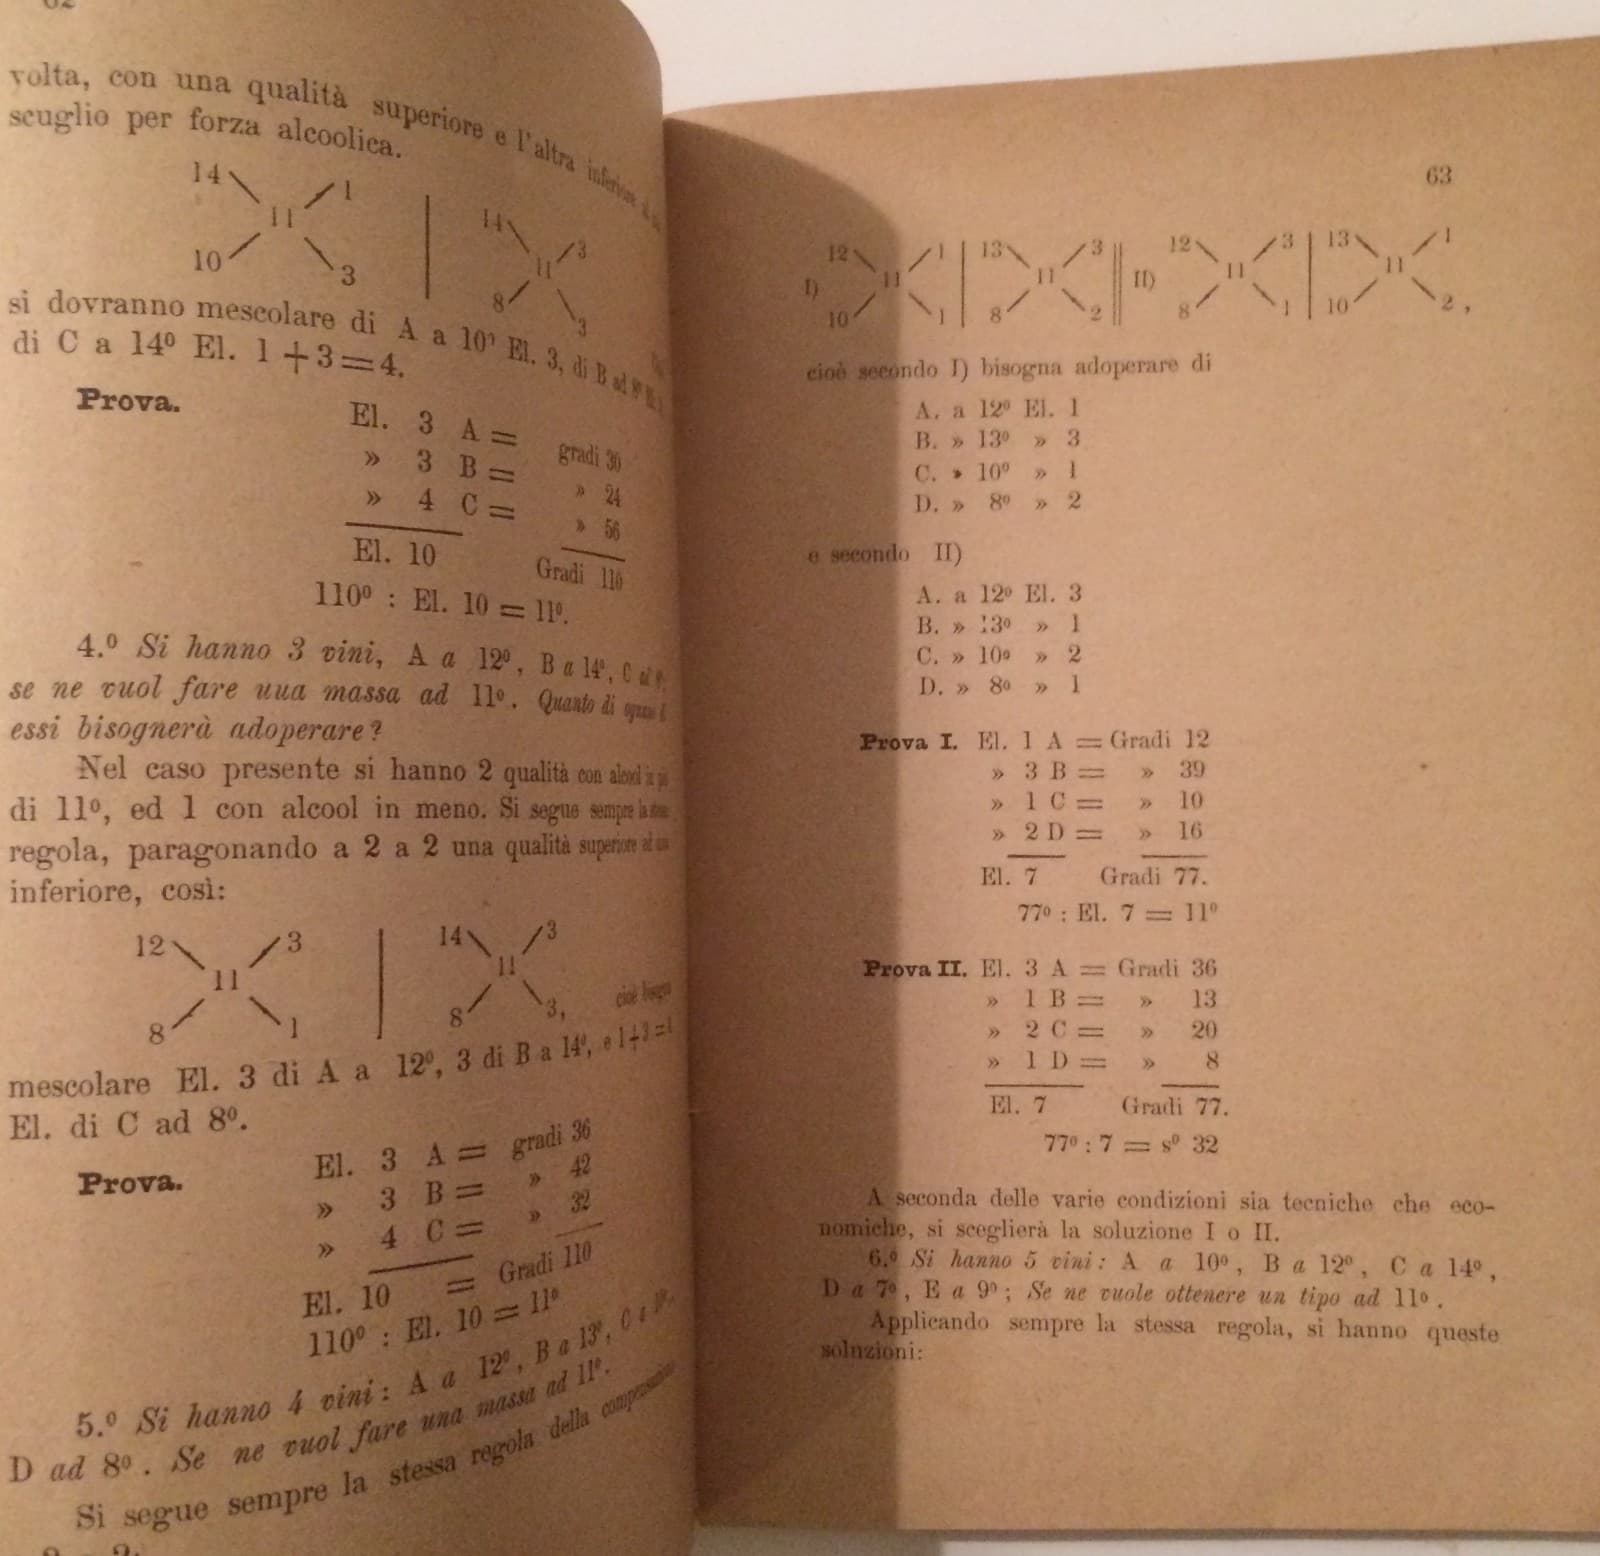 62
volta, con una qualità superiore e l'altra inferiore
scuglio per forza alcoolica.
14 1 | 14 3
11 11
10 3 | 8 3
si dovranno mescolare di A a 10° El. 3, di B ad 8°
di C a 14º El. 1 + 3 = 4.
Prova. El. 3 A = gradi 30
» 3 B = » 24
» 4 C = » 56
El. 10 Gradi 110
110º : El. 10 = 11º.
4.º Si hanno 3 vini, A a 12º, B a 14º, C ad 8º,
se ne vuol fare uua massa ad 11º. Quanto di ognuno di
essi bisognerà adoperare?
Nel caso presente si hanno 2 qualità con alcool in più
di 11º, ed 1 con alcool in meno. Si segue sempre la stessa
regola, paragonando a 2 a 2 una qualità superiore ed una
inferiore, così:
12 3 | 14 3
11 11
8 1 | 8 3, cioè bisogna
mescolare El. 3 di A a 12º, 3 di B a 14º, e 1+3=4
El. di C ad 8º.
Prova. El. 3 A = gradi 36
» 3 B = » 42
» 4 C = » 32
El. 10 = Gradi 110
110º : El. 10 = 11º
5.º Si hanno 4 vini: A a 12º, B a 13º, C a
D ad 8º. Se ne vuol fare una massa ad 11º.
Si segue sempre la stessa regola della compensazione
63
12 1 | 13 3 || 12 3 | 13 1
I) 11 11 II) 11 11
10 1 | 8 2 || 8 1 | 10 2,
cioè secondo I) bisogna adoperare di
A. a 12º El. 1
B. » 13º » 3
C. » 10º » 1
D. » 8º » 2
e secondo II)
A. a 12º El. 3
B. » 13º » 1
C. » 10º » 2
D. » 8º » 1
Prova I. El. 1 A = Gradi 12
» 3 B = » 39
» 1 C = » 10
» 2 D = » 16
El. 7 Gradi 77.
77º : El. 7 = 11º
Prova II. El. 3 A = Gradi 36
» 1 B = » 13
» 2 C = » 20
» 1 D = » 8
El. 7 Gradi 77.
77º : 7 = sº 32
A seconda delle varie condizioni sia tecniche che eco-
nomiche, si sceglierà la soluzione I o II.
6.º Si hanno 5 vini: A a 10º, B a 12º, C a 14º,
D a 7º, E a 9º; Se ne vuole ottenere un tipo ad 11º.
Applicando sempre la stessa regola, si hanno queste
soluzioni: